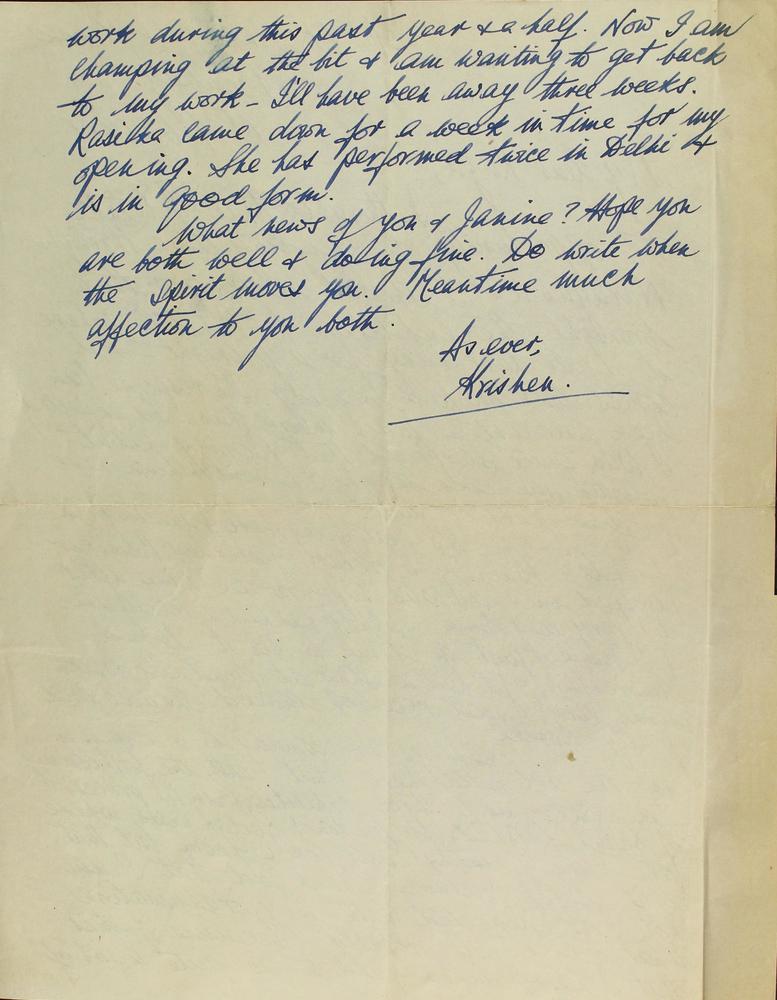 work during this past year & a half. Now I am
champing at the bit & am wanting to get back
to my work – I'll have been away three weeks.
Rasika came down for a week in time for my
opening. She has performed twice in Delhi &
is in good form.
What news of you & Janine? Hope you
are both well & doing fine. Do write when
the spirit moves you. Meantime much
affection to you both.
As ever,
Krishen.